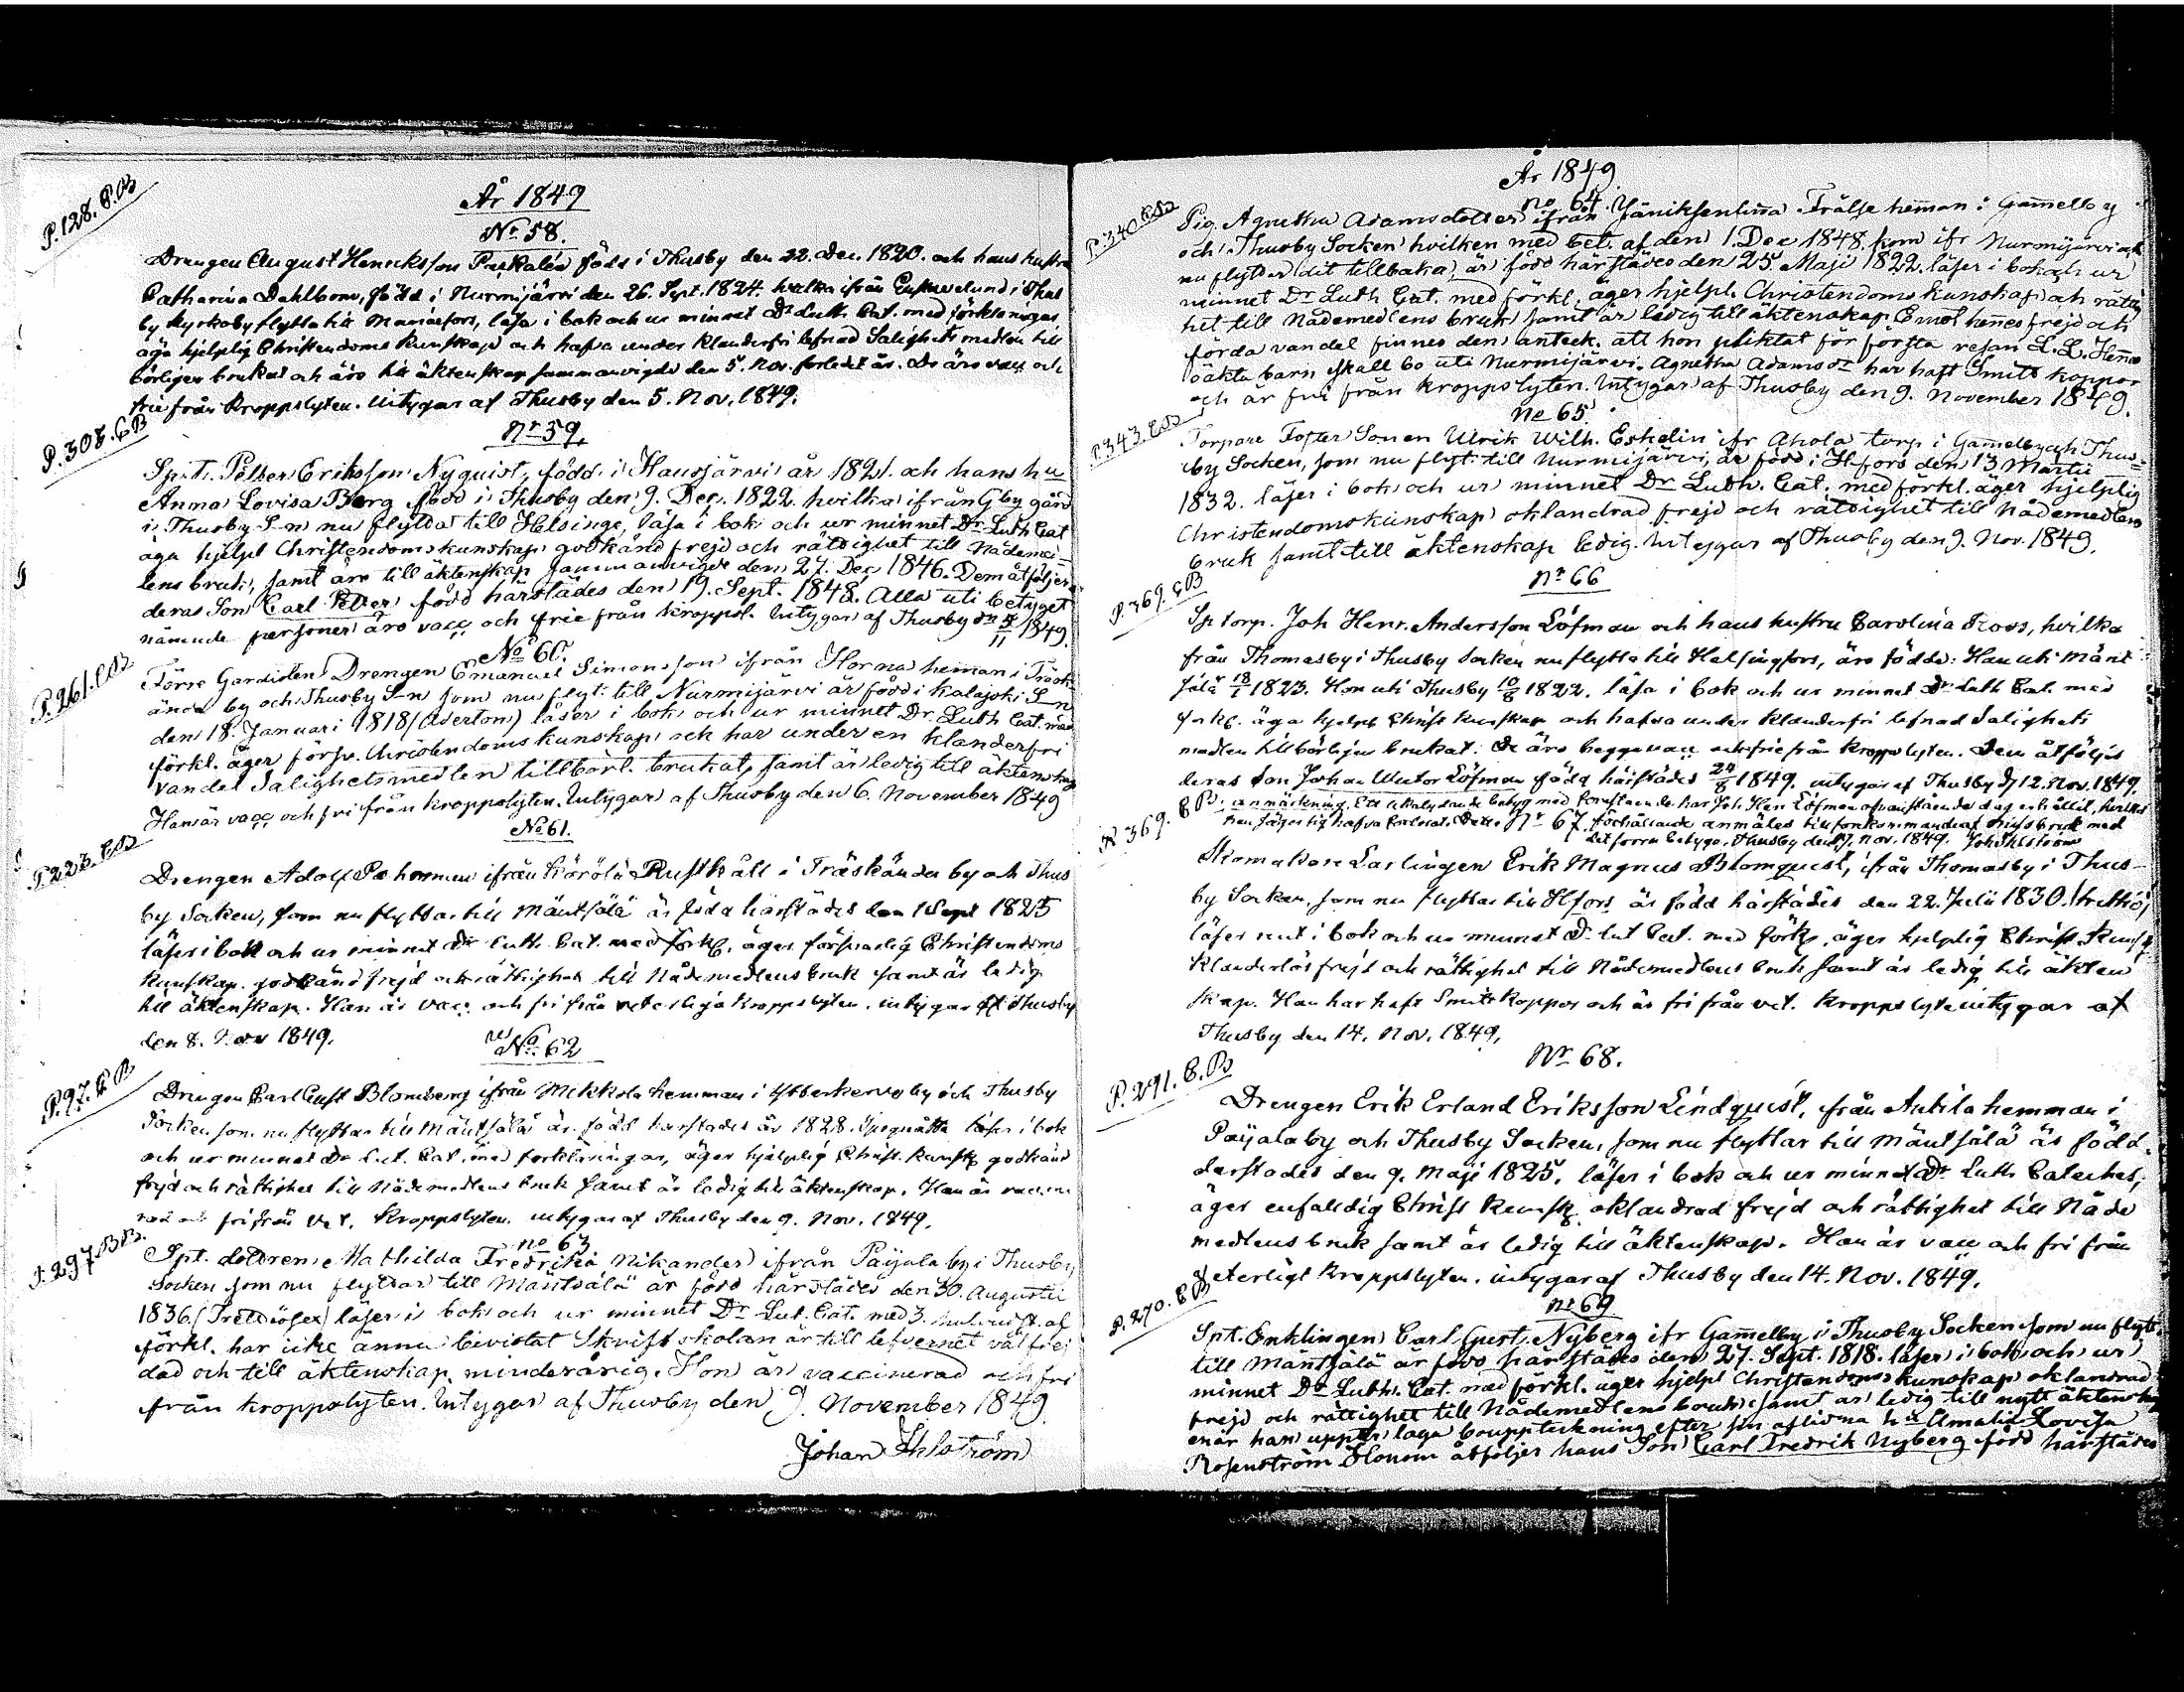 År 1849
P. 128. C.B
No 58.
Drengen August Henriksson född i Thusby den 22. Dec. 1820. och hans hustru
Catharina Dahlbom, född i Nurmijärvi den 26. Sept. 1824. hvilka ifrån i Thus
by kyrkoby flytta till Mariaefors, läsa i bok och ur minnet Dr Luth. Cat. med förklaringar
äga hjelplig Christendoms kunskap och hafva under klanderfri lefnad Salighets medlen till
börligen brukat och äro till äktenskap sammanvigde den 5. Nov. förledet år. De äro vacc och
frie från kroppslyten. Intygar af Thusby den 5. Nov. 1849.
P. 308. C B
Nr 59.
Sp.t. Petter Eriksson Nyquist, född i Hausjärvi år 1821. och hans hu
Anna Lovisa Berg född i Thusby den 9. Dec. 1822. hvilka ifrån Gby gård
i Thusby S-n nu flytta till Helsinge, läsa i bok och ur minnet Dr Luth Cat
äga hjelpl Christendomskunskap godkänd frejd och rättighet till Nådemed-
lens bruk, samt äro till äktenskap sammanvigde den 27. Dec 1846. Dem åtföljer
deras Son Carl Petter född härstädes den 19. Sept. 1848. Alla uti betyget
nämnde personer äro vacc och frie från kroppsl. Intygar af Thusby dn 5/11 1849.
P. 261. C.B
No 60.
Förre Gardisten Drengen Emanuel Simonsson ifrån Horna heman i Träsk
ända by och Thusby S-n som nu flyt. till Nurmijärvi är född i Kalajoki S-n
den 18. Januari 1818 (Aderton) läser i bok och ur minnet Dr. Luth Cat. med
förkl. äger försv. Christendoms kunskap och har under en klanderfri
vandel Salighetsmedlen tillbörl. brukat, samt är ledig till äktenskap
Han är vacc och fri från kroppslyten. Intygar af Thusby den 6. November 1849
P. 223. C.B
No 61.
Drengen Adolf ifrån Körölä Rusthåll i Träskända by och Thus
by Socken, som nu flyttar till Mäntsälä är född härstädes den 1 Sept 1825
läser i bok och ur minnet Dr Luth. Cat. med förkl. äger försvarlig Christendoms
kunskap. godkänd frejd och rättighet till Nådemedlens bruk samt är ledig
till äktenskap. Han är vacc. och fri från veterliga kroppslyten. intygar af Thusby
den 8. Nov 1849.
P. 97. C B
No 62
Drengen Carl Gust Blomberg ifrån Mikkola hemman i Ytterkervo by och Thusby
Socken som nu flyttar till Mäntsälä är född härstädes år 1828. läser i bok
och ur minnet Dr Lut. Cat. med förklaringar, äger hjelplig Christ. kunsk godkänd
frejd och rättighet till Nådemedlens bruk samt är ledig till äktenskap. Han är vaccine
rad och fri från vet. kroppslyten. intygar af Thusby den 9. Nov. 1849.
P. 297. B B.
No 63
Spt. dottren Mathilda Fredrika Nikander ifrån Paijala by i Thusby
Socken som nu flyttar till Mäntsälä är född härstädes den 30. Augustii
1836. (Trettiosex) läser i bok och ur minnet Dr Lut. Cat. med 3. af
förkl. har icke ännu bivistat Skriftskolan är till lefvernet välfrej
dad och till äktenskap minderårig. Hon är vaccinerad och fri
från kroppslyten. Intygar af Thusby den 9. November 1849.
Johan Ihlström
År 1849.
P. 340. C.B
No 64.
Pig. Agnetha Adamsdotter ifrån Träsle heman i Gamelby
och Thusby Socken hvilken med bet. af den 1. Dec 1848. kom ifr Nurmijärvi och
nu flyttar dit tillbaka, är född härstädes den 25. Maji 1822. läser i bok och ur
minnet Dr Luth Cat. med förkl. äger hjelpl. Christendoms kunskap och rättig
het till Nådemedlens bruk samt är ledig till äktenskap. Emot hennes frejd och
förda vandel finnes den anteck. att hon pliktat för första resan L. L. Hennes
oäkta barn skall bo uti Nurmijärvi. Agnetha Adamsdr har haft Smitt koppor
och är fri från kroppslyten. Intygar af Thusby den 9. November 1849.
P. 343. C.B
No 65.
Torpare Foster Sonen Ulrik Wilh. Eskelin ifr Ahola torp i Gamelby och Thus-
by Socken, som nu flyt. till Nurmijärvi, är född i H.fors den 13 Martii
1832. läser i bok och ur minnet Dr Luth. Cat. med förkl. äger hjelplig
Christendomskunskap oklandrad frejd och rättighet till Nådemedlens
bruk samt till äktenskap ledig. Intygar af Thusby den 9. Nov. 1849.
P. 369. C B
Nr 66
Sp torp. Joh Henr. Andersson Löfman och hans hustru Carolina Roos, hvilka
från Thomasby i Thusby Socken nu flytta till Helsingfors, äro födde: Han uti Mänt
sälä 18/1 1823. Hon uti Thusby 10/8 1822. läsa i bok och ur minnet Dr Luth Cat. med
förkl. äga hjelpl Christ kunskap och hafva under klanderfri lefnad Salighets
medlen tillbörligen brukat. De äro begge vacc och frie från kroppslyten. Dem åtföljer
deras Son Johan Victor Löfman född härstädes 24/8 1849. intygar af Thusby d. 12. Nov. 1849.
P. 369. C B.
anmärkning. Ett betyg med har Joh. Henr Löfman
han säger sig hafva förlorat. Detta förhållande anmäles med
det förra betyget. Thusby den . Nov. 1849. Joh Ihlström
Nr 67.
Skomakare Lärlingen Erik Magnus Blomquist, ifrån Thomasby i Thus-
by Socken, som nu flyttar till Hfors är född härstädes den 22. Julii 1830. (trettio)
läser rent i bok och ur minnet Dr Lut Cat. med förkl, äger hjelplig Christ. kunsk.
klanderlös frejd och rättighet till Nådemedlens bruk samt är ledig till äkten
skap. Han har haft Smitt koppor och är fri från vet. kroppslyte intygar af
Thusby den 14. Nov. 1849.
P. 291. C. B
Nr 68.
Drengen Erik Erland Eriksson Lindquist, från Antila hemman i
Paijala by och Thusby Socken, som nu flyttar till Mäntsälä är född
derstädes den 9. Maji 1825. läser i bok och ur minnet Dr Luth Cateches,
äger enfaldig Christ kunsk. oklandrad frejd och rättighet till Nåde
medlens bruk samt är ledig till äktenskap. Han är vacc och fri från
veterligt kroppslyten. intygar af Thusby den 14. Nov. 1849.
P. 270. C B
No 69
Spt. Enklingen Carl Gust. Nyberg ifr Gamelby i Thusby Socken som nu flytt.
till Mäntsälä är född härstädes den 27. Sept. 1818. läser i bok och ur
minnet Dr Luth. Cat. med förkl. äger hjelpl Christendoms kunskap oklandrad
frejd och rättighet till Nådemedlens bruk samt är ledig till nytt äktenskap
enär han uppter laga bouppteckning efter sin aflidna hu Amalia Lovisa
Rosenström Honom åtföljer hans Son Carl Fredrik Nyberg född härstädes